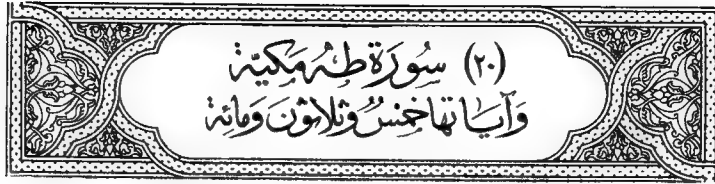 (٢٠) سُورَة طٰهٰ مَكيّة
وَآيَاتها خَمْسٌ وَثَلاثُونَ وَمائة